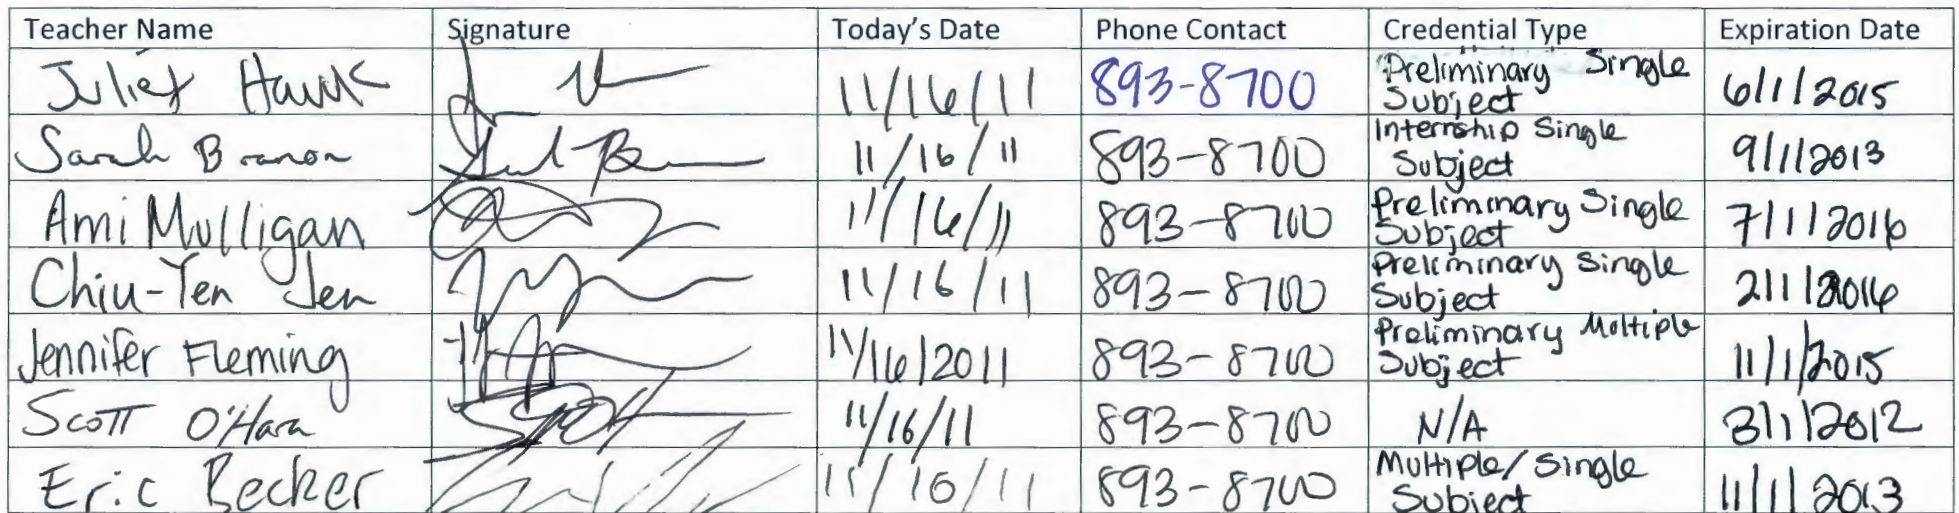 Teacher Name Signature Today's Date Phone Contact Credential Type Expiration Date
Juliet Hawk 11/16/11 893-8700 Preliminary Single Subject 6/1/2015
Sarah Branon 11/16/11 893-8700 Internship Single Subject 9/1/2013
Ami Mulligan 11/16/11 893-8700 Preliminary Single Subject 7/1/2016
Chiu-Yen Jen 11/16/11 893-8700 Preliminary Single Subject 2/1/2016
Jennifer Fleming 11/16/2011 893-8700 Preliminary Multiple Subject 11/1/2015
Scott O'Hara 11/16/11 893-8700 N/A 3/1/2012
Eric Becker 11/16/11 893-8700 Multiple/Single Subject 11/1/2013